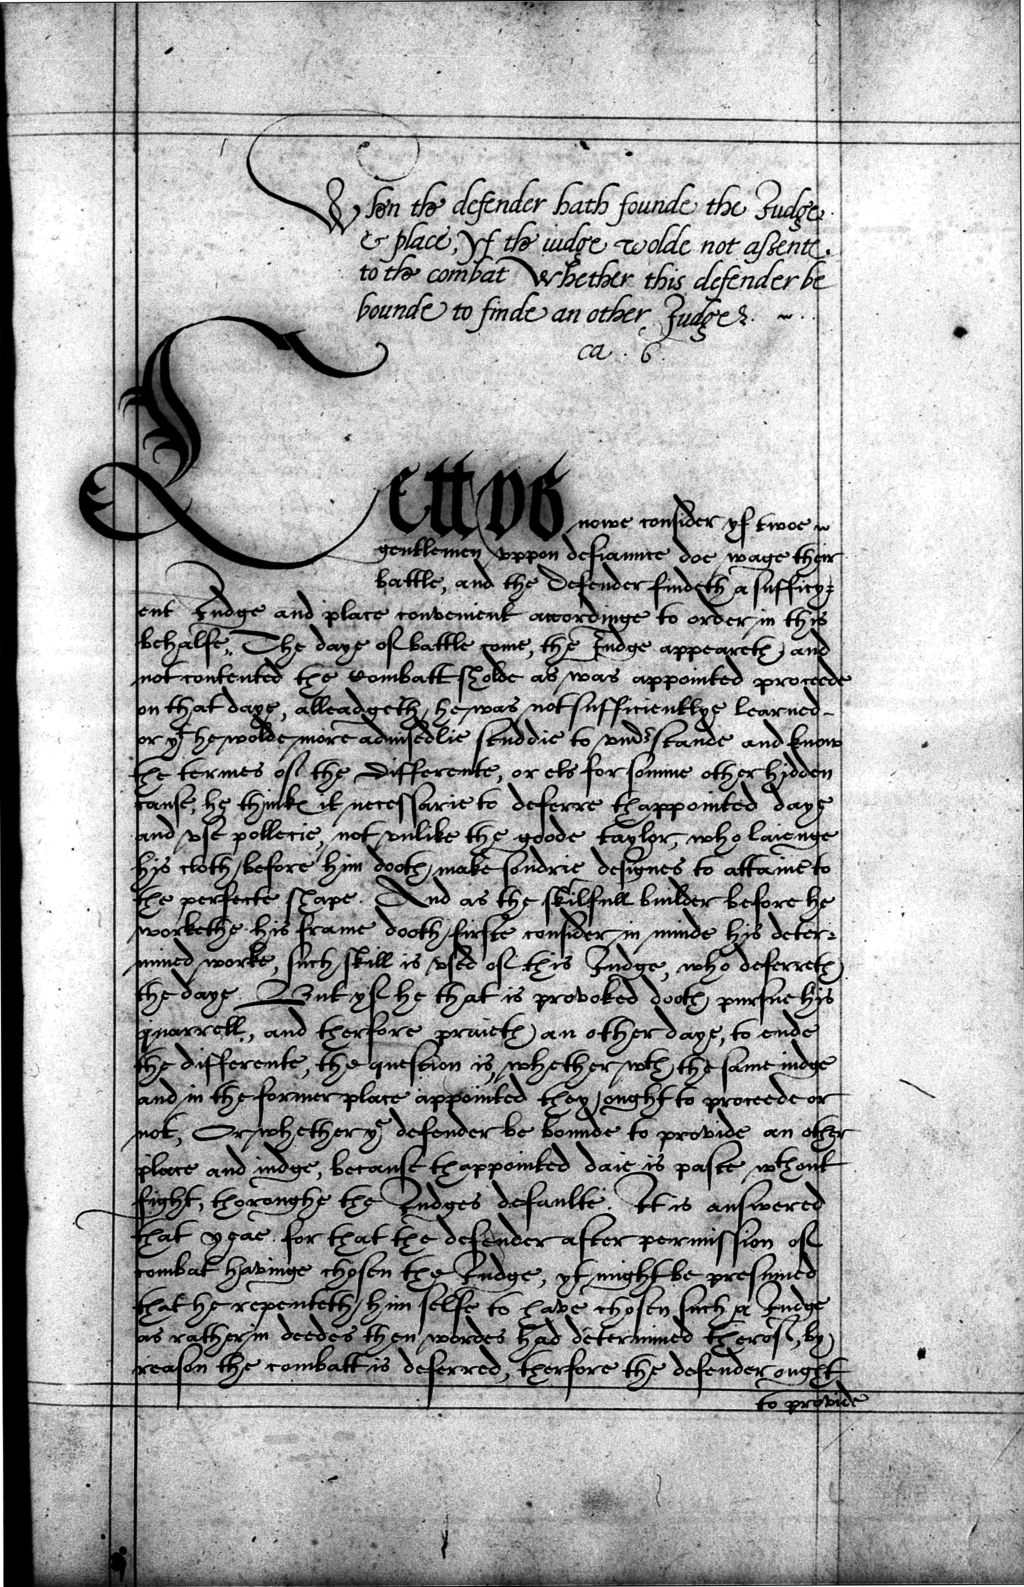 When the defender hath founde the Judge
& place, Yf the iudge wolde not assente
to the combat Whether this defender be
bounde to finde an other Judge. ~
ca. 6.
Lett vs nowe consider yf twoe
gentlemen vppon defiannce doe wage their
battle, and the defender findeth a sufficy=
ent Judge and place convenient accordinge to order in this
behalfe. The daye of battle come, the Judge appeareth and
not contented the Combatt sholde as was appointed proceede
on that daye, alleadgeth he was not sufficientlye learned
or yt he wolde more advisedlie studdie to vnderstande and know
the termes of the differente, or els for somme other hidden
cause, he thinks it necessarie to deferre thappointed daye
and vse pollecie, not vnlike the goode taylor, who laienge
his cloth before him dooth make sondrie designes to attaine to
the perfecte shape. And as the skilfull builder before he
workethe his frame dooth firste consider in minde his deter=
mined worke, such skill is vsed of this Judge, who deferreth
the daye. But yf he that is provoked dooth pursue his
quarrell, and therfore praieth an other daye, to ende
the differente, the question is, whether wth the same iudge
and in the former place appointed they ought to proceede or
not, Or whether ye defender be bounde to provide an other
place and iudge, because thappointed daie is paste wthout
fight, thoroughe the Judges defaulte. It is answered
that yeae. for that the defender after permission of
combat havinge chosen the Judge, yt might be presumed
that he repenteth him selfe to have chosen such a Judge
as rather in deedes then wordes had determined therof, by
reason the combatt is deferred, therfore the defender ought
to provide